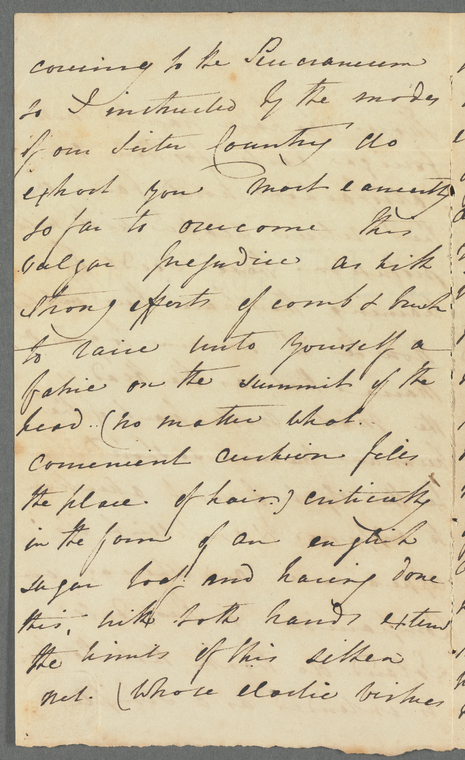 covering to the Pericraneum
so I instructed by the modes
of our Sister Country do
exhort you most earnestly
so far to overcome this
vulgar prejudice as with
strong efforts of comb & brush
to raise unto yourself a
fabric on the summit of the
head. (no matter what
convenient cushion fills
the place of hair.) critically
in the form of an english
sugar loaf and having done
this, with both hands extend
the limits of this silken
net. (whose elastic virtues